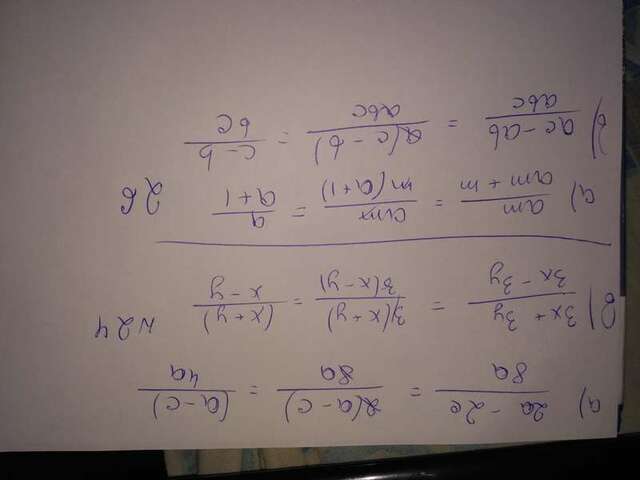 а) (2a - 2c)/8a = 2(a - c)/8a = (a - c)/4a
в) (3x + 3y)/(3x - 3y) = 3(x + y)/3(x - y) = (x + y)/(x - y) №24
а) am/(am + m) = am/m(a + 1) = a/(a + 1) 26
в) (ac - ab)/abc = a(c - b)/abc = (c - b)/bc